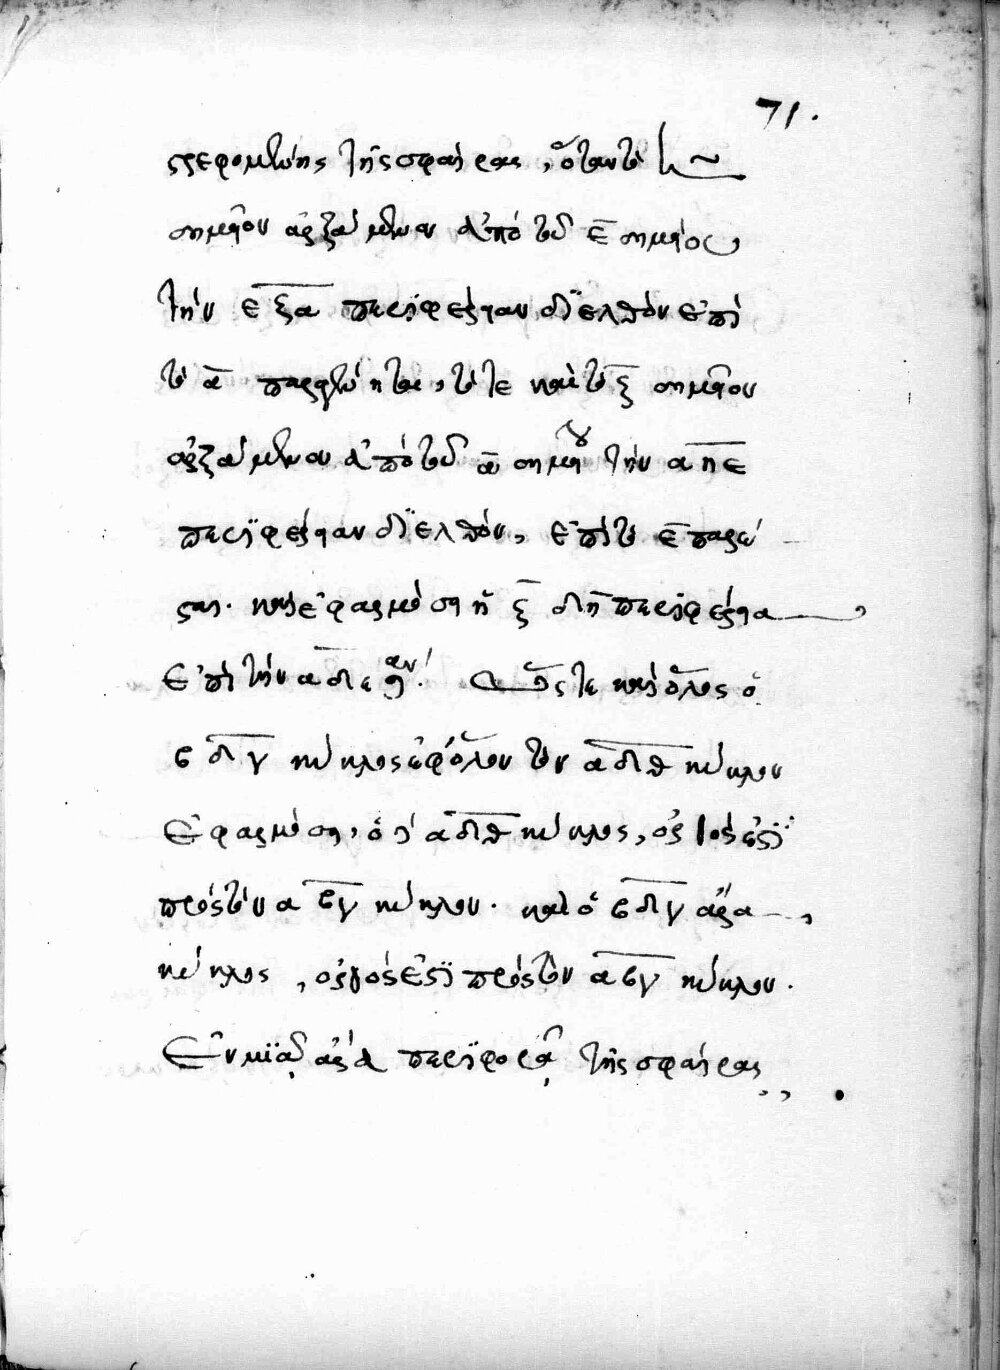 71.
στρεφομένης τῆς σφαίρας, ὅταν τὸ
σημεῖον ἀρξάμενον ἀπὸ τοῦ ε̅ σημείου
τὴν ε̅ξ̅α̅ περιφέρειαν διελθὸν ἐπὶ
τὸ α̅ παραγένηται, τότε καὶ τὸ ξ̅ σημεῖον
ἀρξάμενον ἀπὸ τοῦ α̅ σημείου τὴν α̅η̅ε̅
περιφέρειαν διελθόν, ἐπὶ τὸ ε̅ παρέ
σται. καὶ ἐφαρμόσει ἡ ξ̅ δ̅η̅ περιφέρεια
ἐπὶ τὴν α̅δ̅ε̅ ὥστε καὶ ὅλος ὁ
β̅δ̅γ̅ κύκλος ἐφ' ὅλον τὸν α̅δ̅θ̅ κύκλον
ἐφαρμόσει, ὁ δὲ α̅δ̅θ̅ κύκλος, ὀρθός ἐστι
πρὸς τὸν α̅β̅γ̅ κύκλον. καὶ ὁ β̅δ̅γ̅ ἄρα
κύκλος, ὀρθός ἐστι πρὸς τὸν α̅β̅γ̅ κύκλον.
ἐν μιᾷ ἄρα περιφορᾷ τῆς σφαίρας